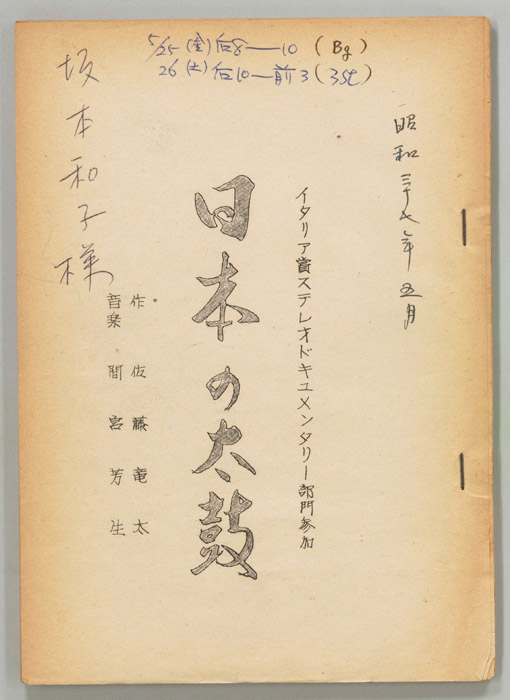 5/25(金)后8―10 (Bg)
26(土)后10―前3(3St)
昭和三十七年五月
イタリア賞ステレオドキュメンタリー部門参加
日本の太鼓
作 佐藤竜太
音楽 間宮芳生
坂本和子様